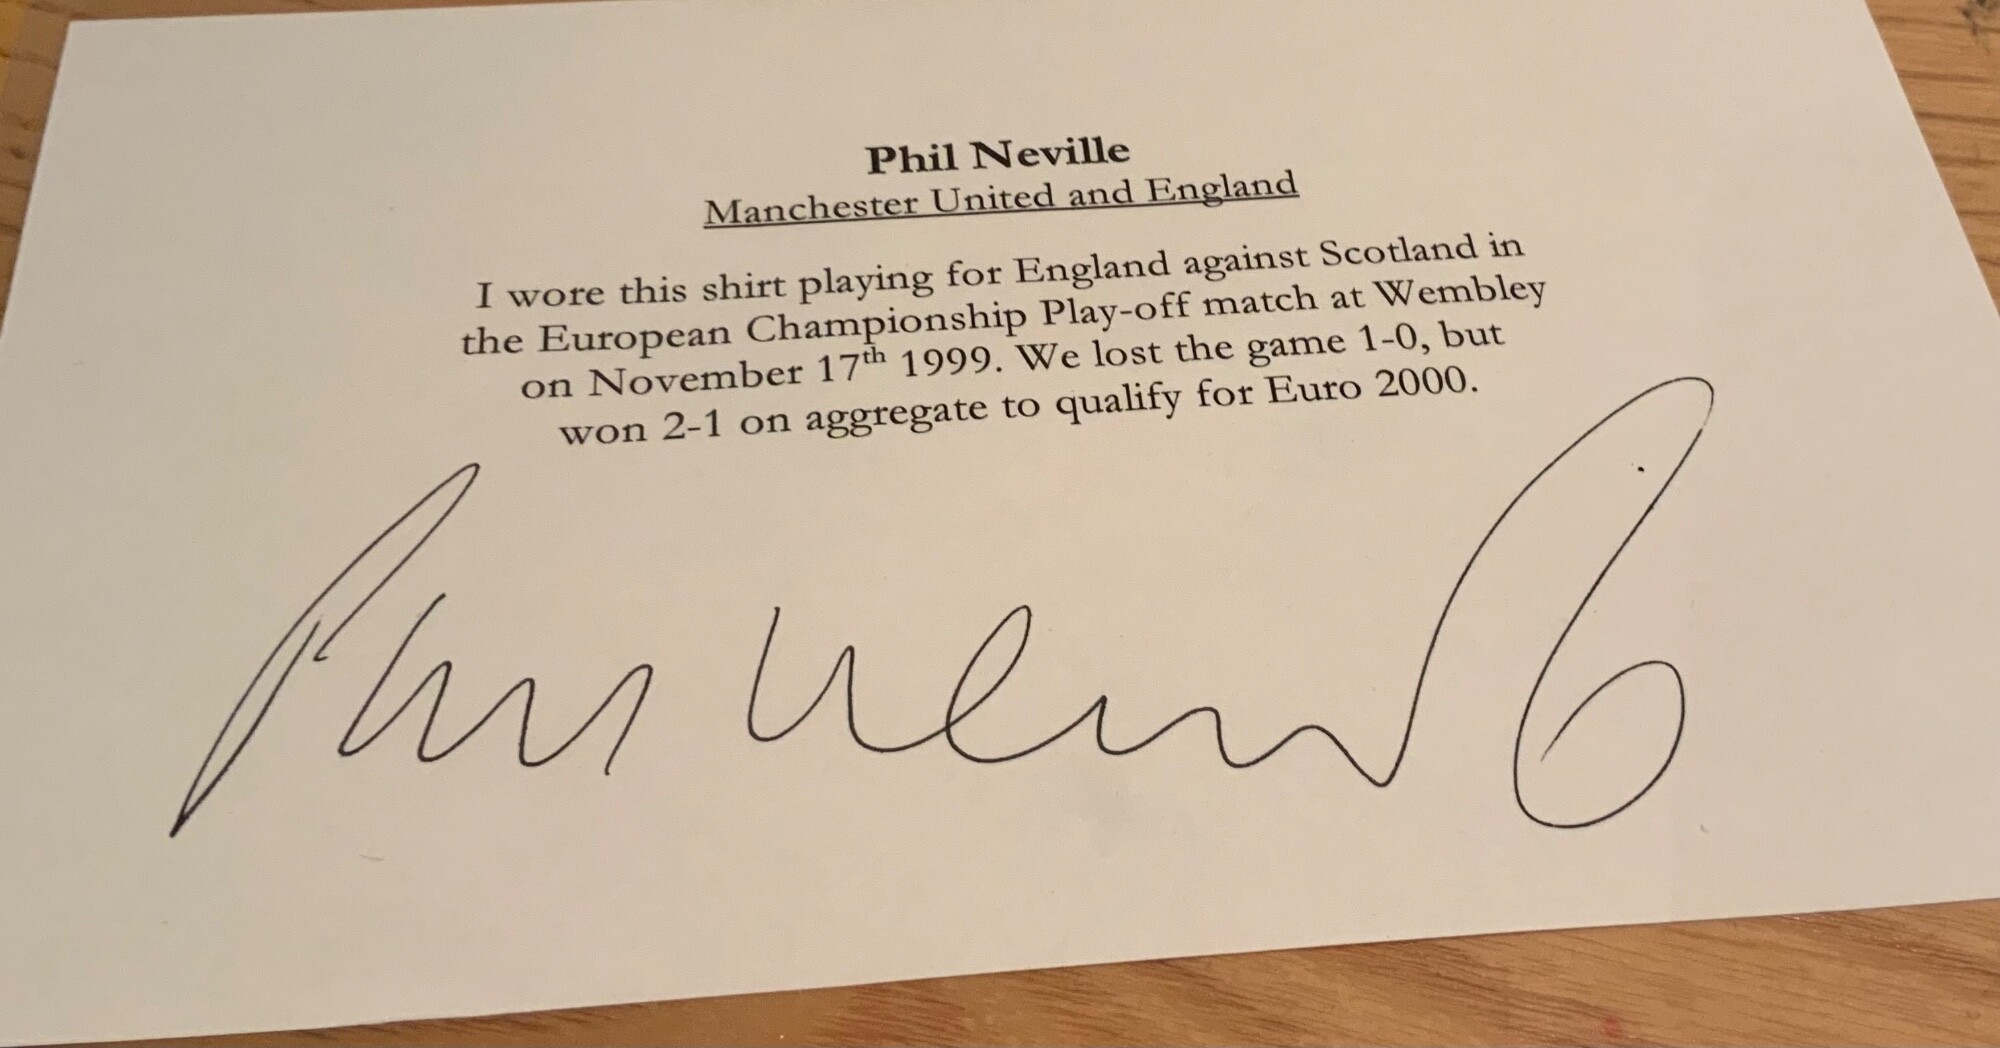 Phil Neville
Manchester United and England
I wore this shirt playing for England against Scotland in
the European Championship Play-off match at Wembley
on November 17th 1999. We lost the game 1-0, but
won 2-1 on aggregate to qualify for Euro 2000.
Phil Neville